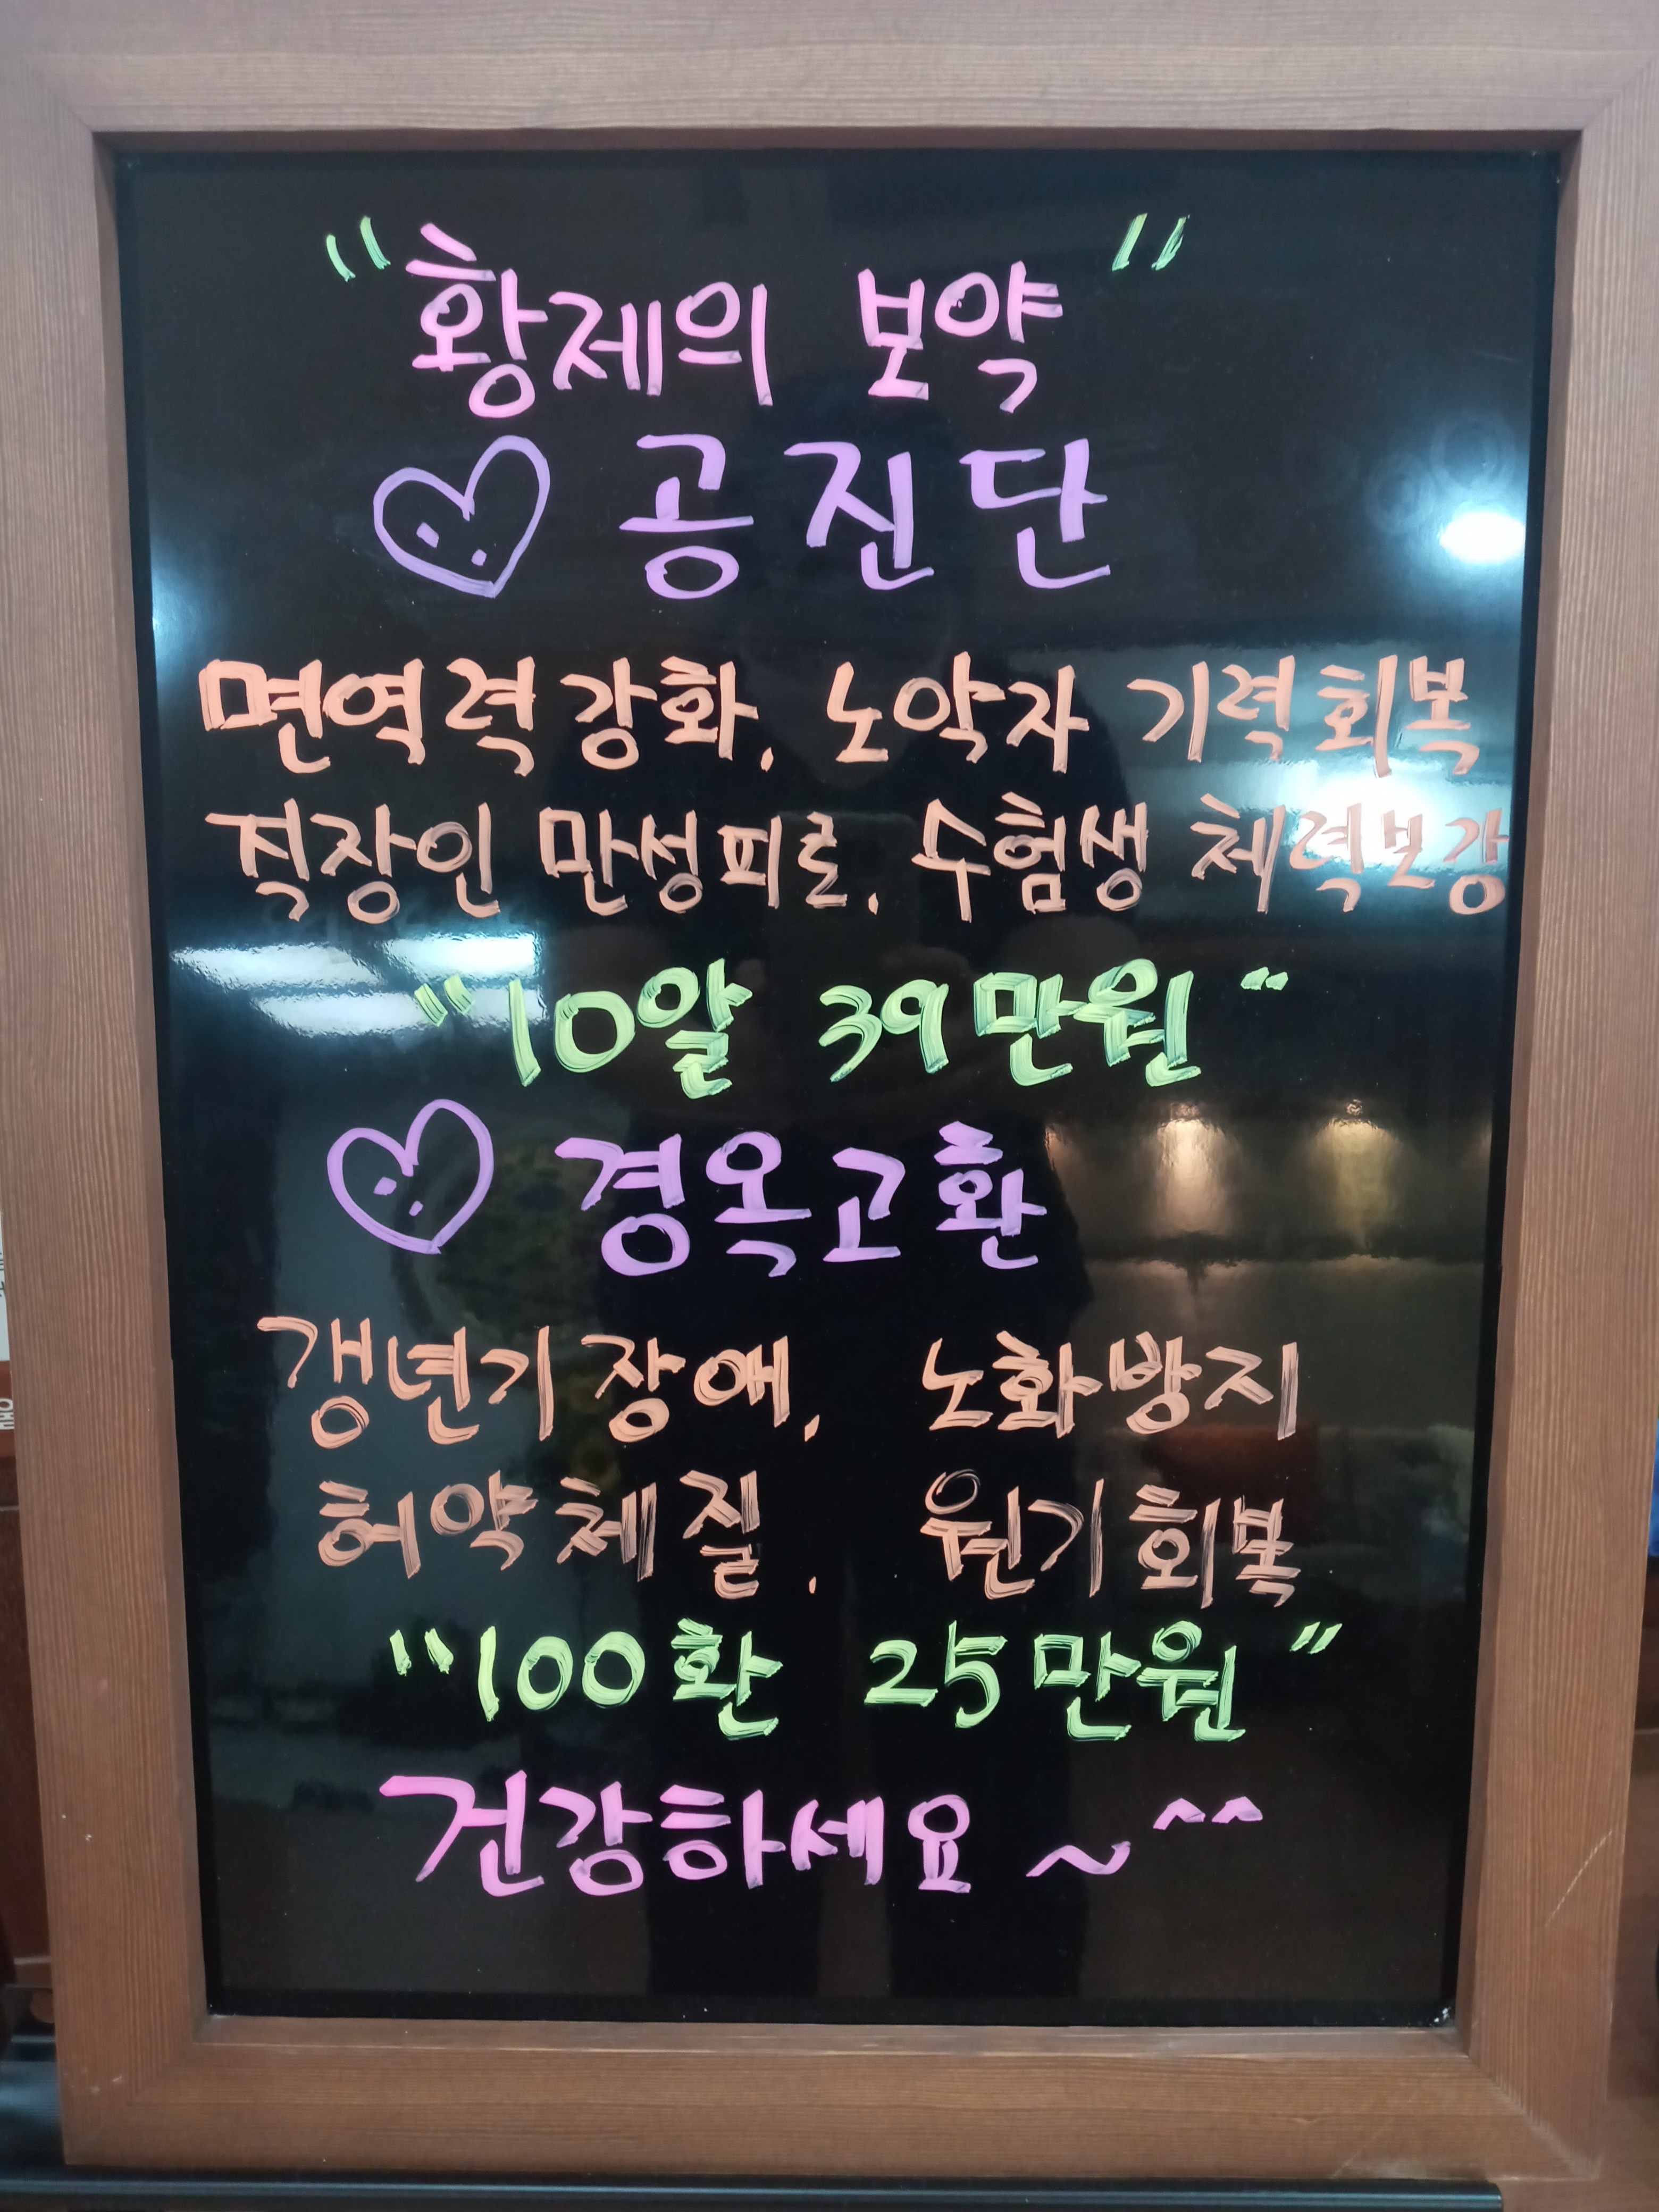 "황제의 보약"
♡ 공진단
면역력강화, 노약자 기력회복
직장인 만성피로, 수험생 체력보강
"10알 39만원"
♡ 경옥고환
갱년기장애, 노화방지
허약체질, 원기회복
"100환 25만원"
건강하세요~^^